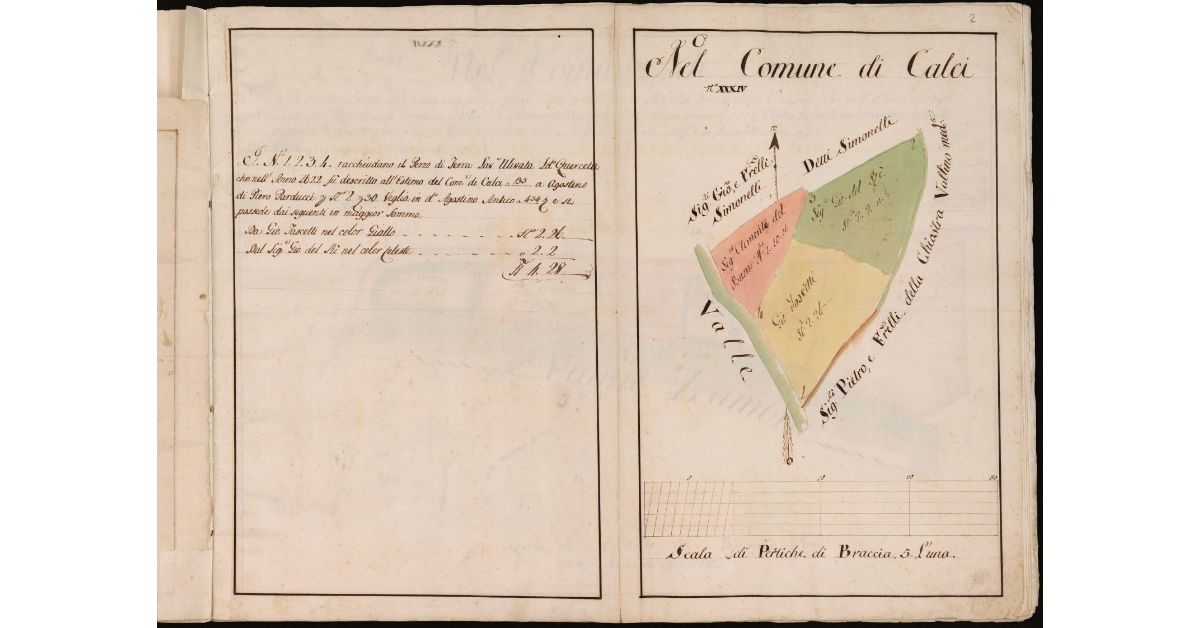 2
Nel Comune di Calci
N.º XXXIV
I. N.i 1. 2. 3. 4. racchiudano il Pezzo di Terra Lav.ª Ulivata
che nell' Anno 1622. fù descritto all' Estimo del Com.e di Calci a 133 a Agostino
di Piero Parducci p St.ª 2 Veglia in d.º Agostino Antico a 434 e si
possiede dai seguenti in maggior Somma.
Da Gio. Pascetti nel color Giallo St.ª 2. 26.
Dal Sig.e Gio. del Rè nel color Celeste " 2. 2
St.ª 4. 28
Sig.ri Gio., e Fr̃elli
Simonelli
Detti Simonelli
Sig.e Clemente del
Buono St.ª 2. 10
3
Sig.e Gio. del Rè
St.ª 2. 2.
2
Gio. Pascetti
St.ª 2. 26
4
1
Valle
Sig.ri Pietro, e Fr̃elli della Chiostra Vallino med.mo
5 10 20 30
Scala di Pertiche di Braccia 5 l'una